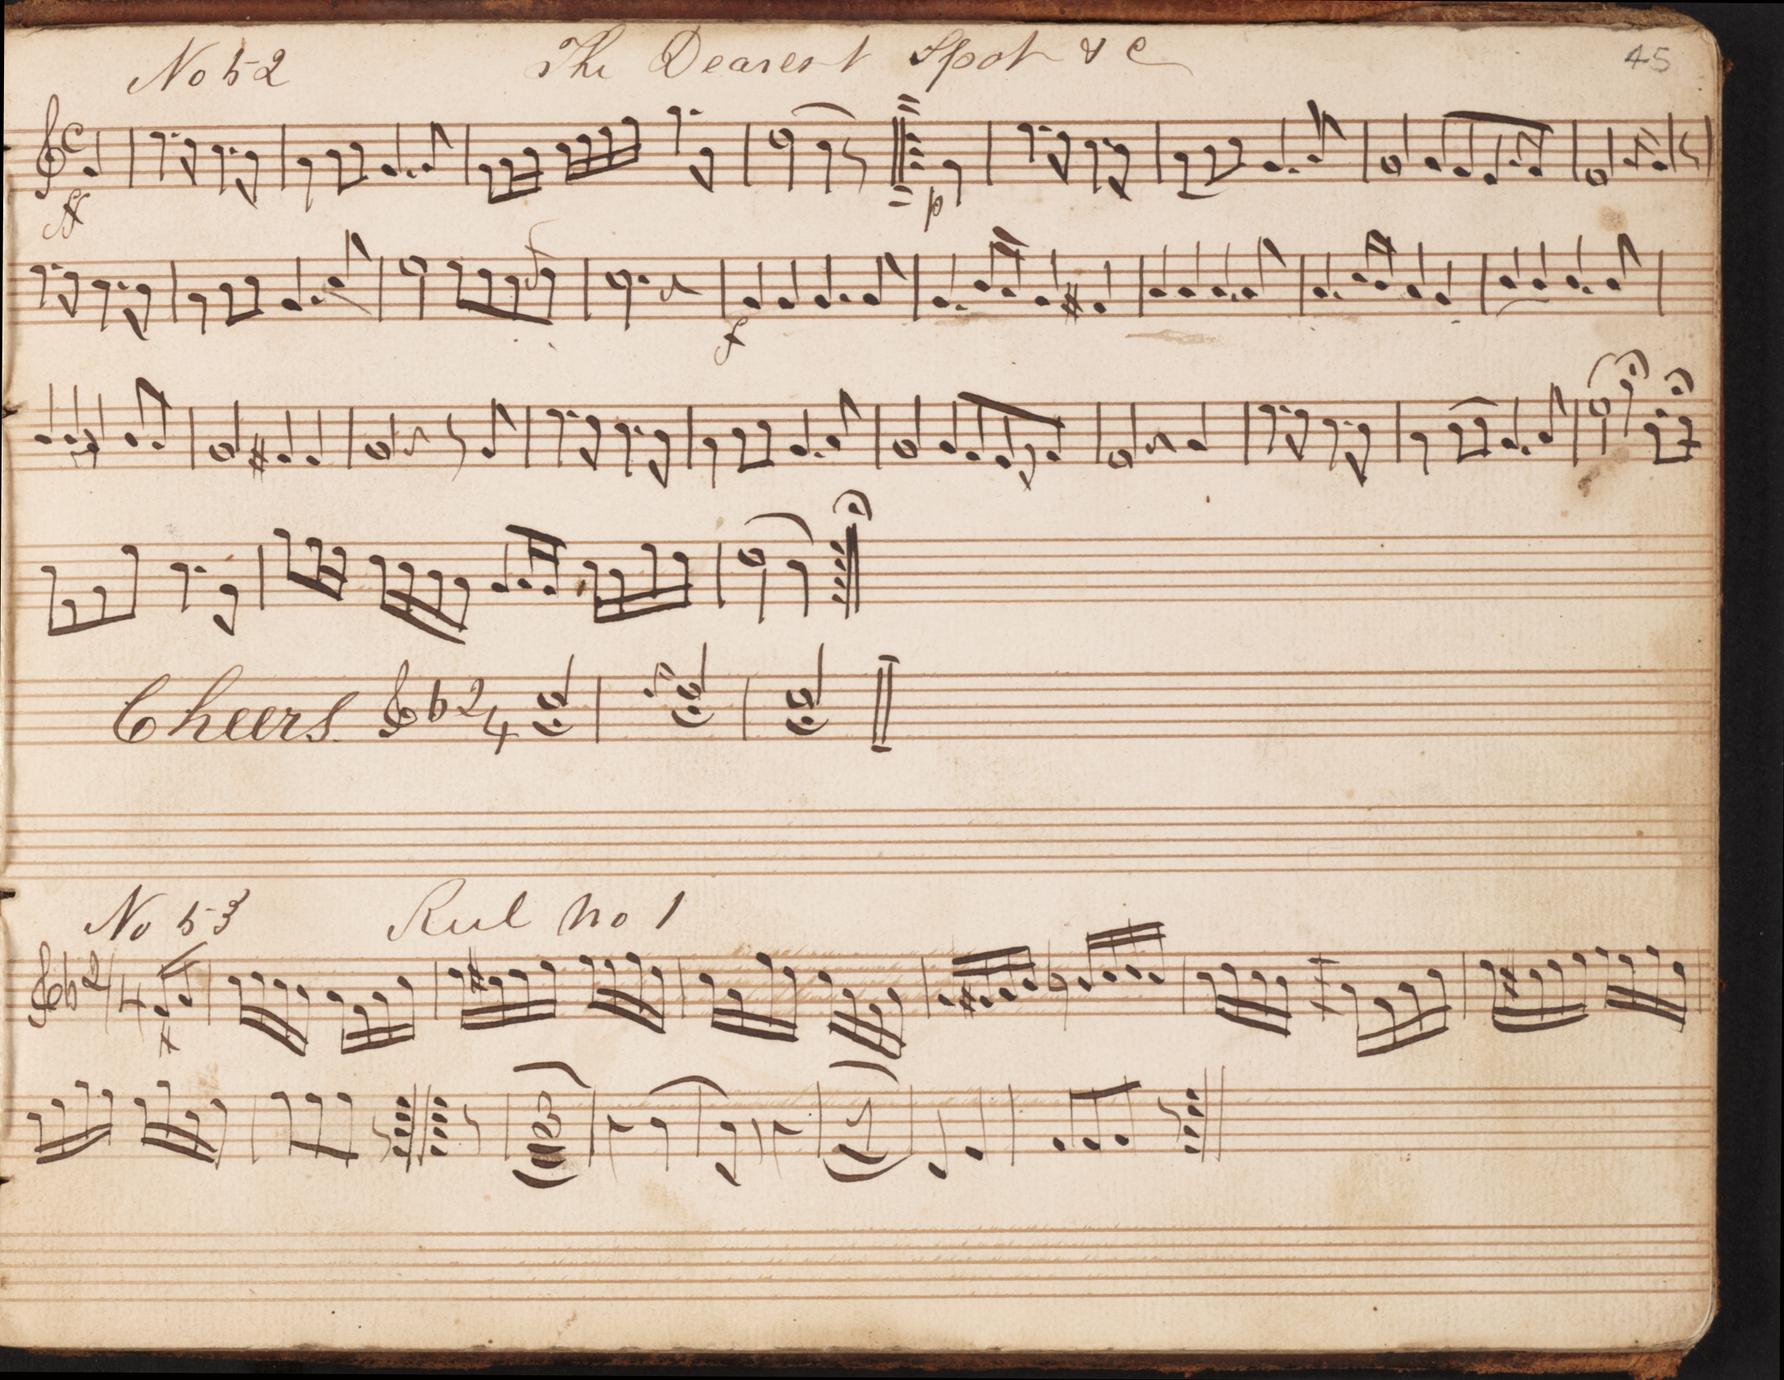 No 52 The Dearest Spot & c 45
C
ff p
f
Cheers. 2 4
No 53 Reel no 1
2 4
f
2